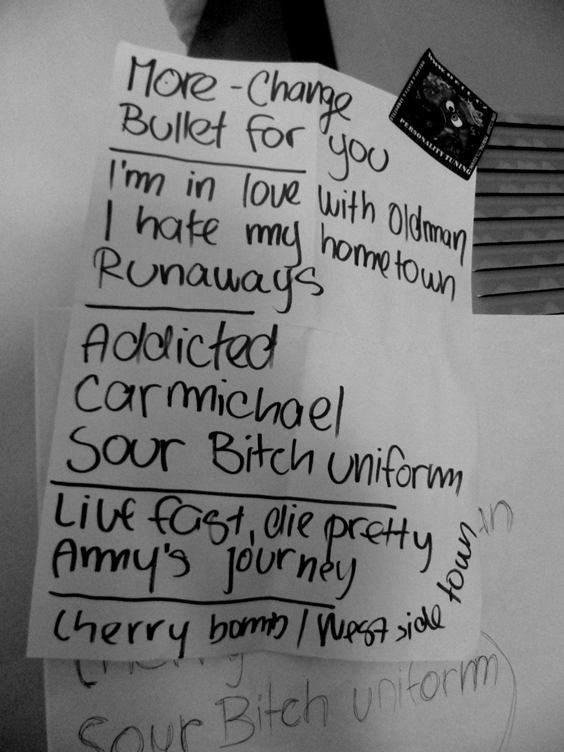 More - Change
Bullet for you
I'm in love with oldman
I hate my hometown
Runaways
Addicted
Carmichael
Sour Bitch uniform
Live fast, die pretty
Amy's journey
Cherry bomb / West side town
in
Cherry
Sour Bitch uniform)
PERSONALITY TUNING